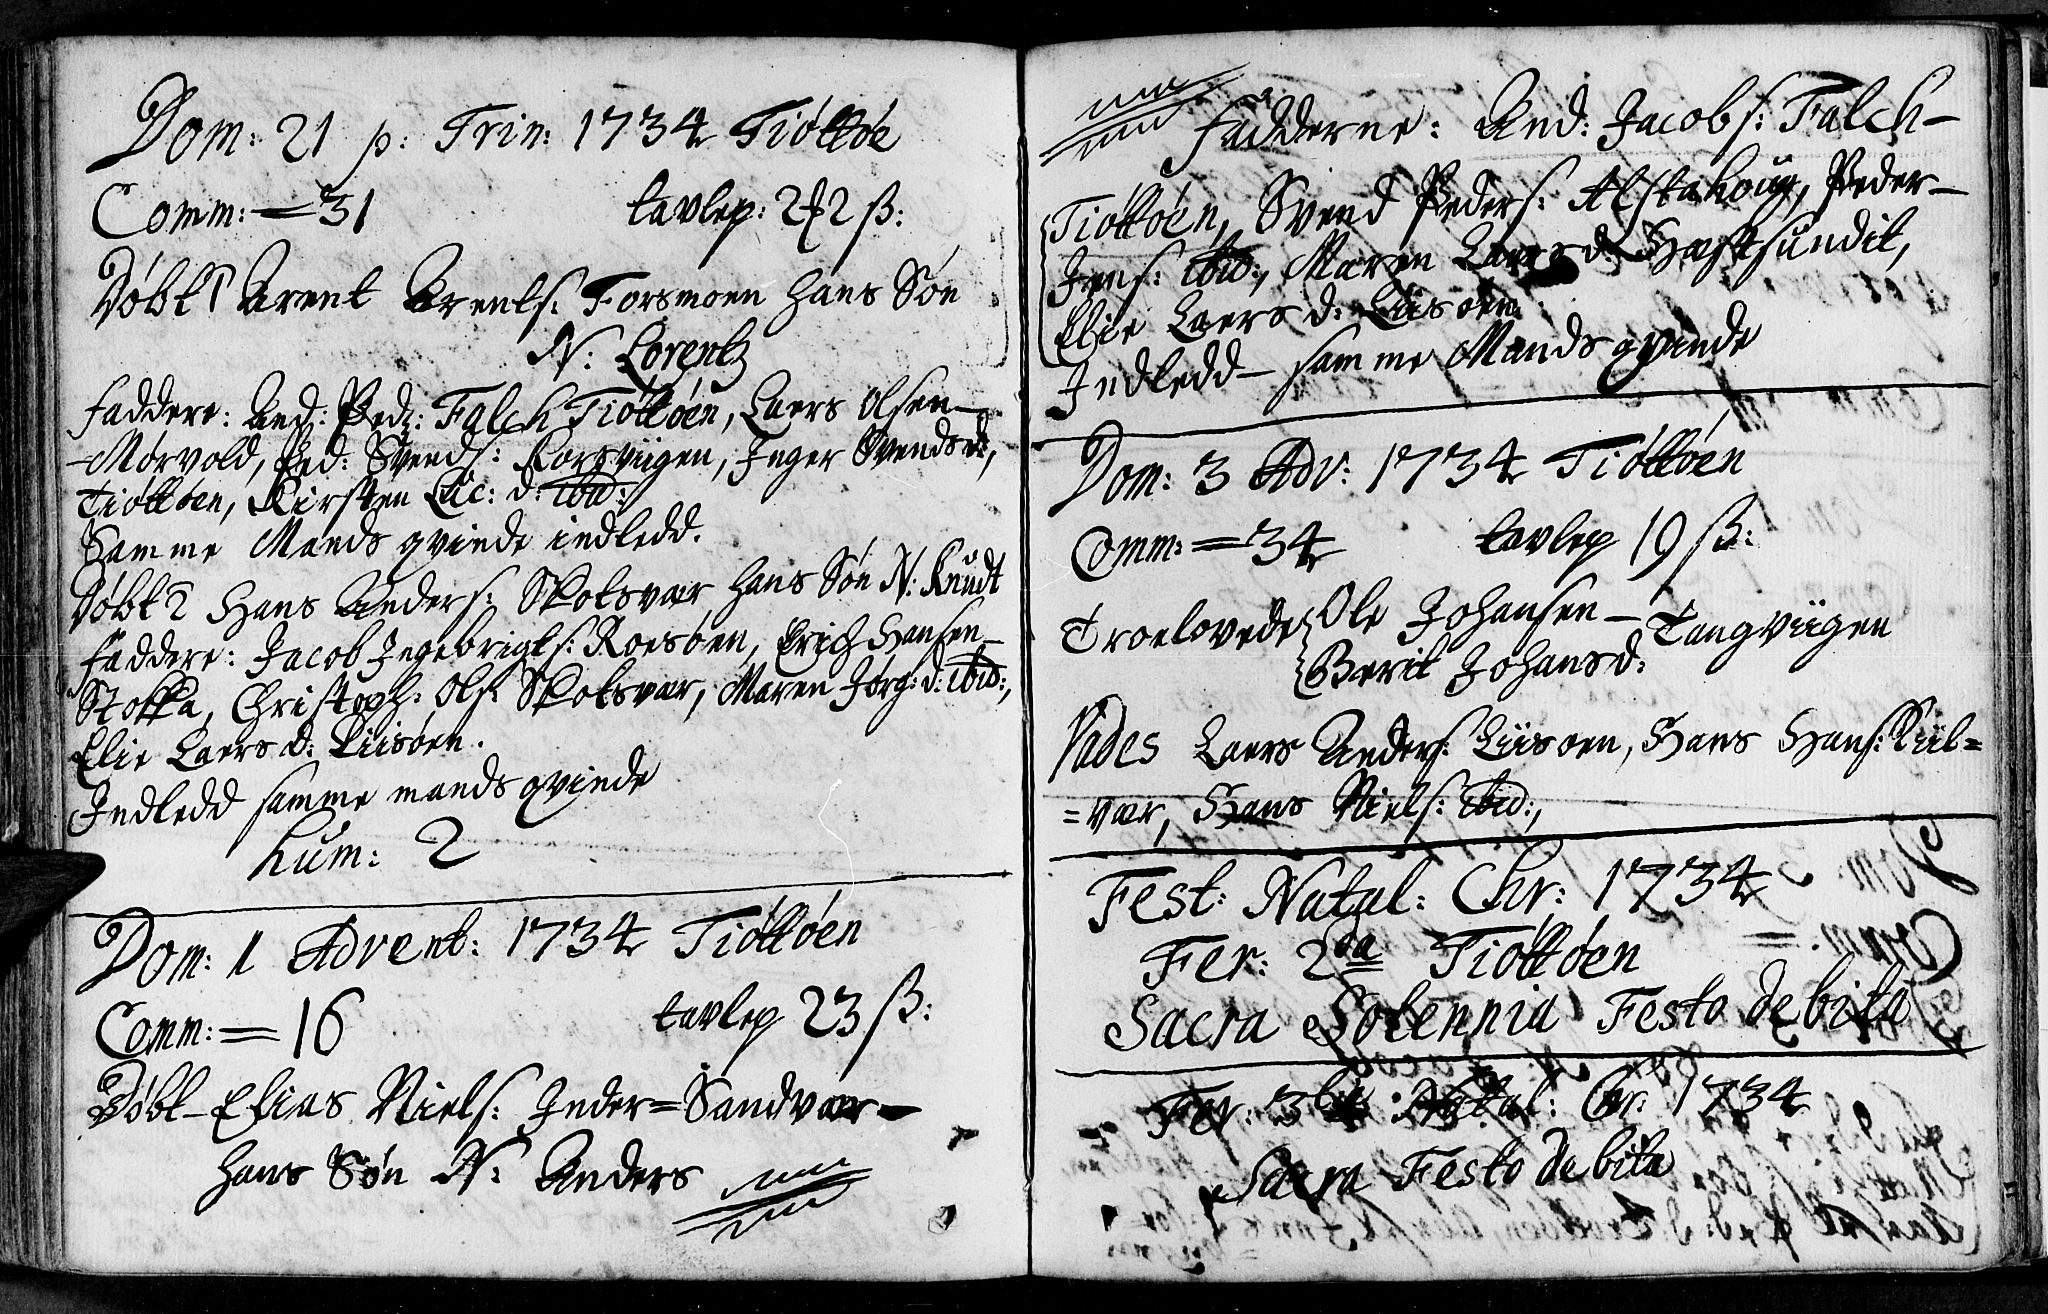 Dom: 21 p: Trin: 1734 Tiøttøe
Comm: = 31 tavlep: 2 # 2 ß:
Døbt 1 Arent Arents: Forsmoen hans Søn
N: Lorentz
faddere: And: Pedr: Falch Tiøttøen, Laers Olsen
Mørvold, Ped: Svends: Korsviigen, Inger Svends d:
Tiøttøen, Kirsten Eric: d: ibid:
Samme Mands qvinde indledd.
Døbt 2 Hans Anders: Skotsvær hans Søn N: Knudt
faddere: Jacob Ingebrigts: Roesøen, Erich Hansen
Stokka, Christoph: Ols: Skotsvær, Maren Jørg: d: ibid:,
Elie Laers d: Liisøen.
Indledd samme mands qvinde
hum: 2
Dom: 1 Advent: 1734 Tiøttøen
Comm: = 16 tavlep 23 ß:
Døbt Elias Niels: Inder=Sandvær
hans Søn N: Anders
Fadderne: And: Jacobs: Falch
Tiøttøen, Svend Peders: Alstahoug, Peder
Jens: ibid:, Maren Laers d: Hæstsundit,
Elie Laers d: Liisøen.
Indledd samme Mands qvinde
Dom: 3 Adv: 1734 Tiøttøen
Comm: = 34 tavlep 19 ß:
Troelovede Ole Johansen Tangviigen
Berit Johansd:
Vades Laers Anders: Liisoen, Hans Hans: Kiil=
=vær, Hans Niels: ibid:,
Fest: Natal: Chr: 1734
Fer: 2da Tiøttøen
Sacra Solennia Festo debita
Fer: 3tia Natal: Chr: 1734
Sacra Festo debita